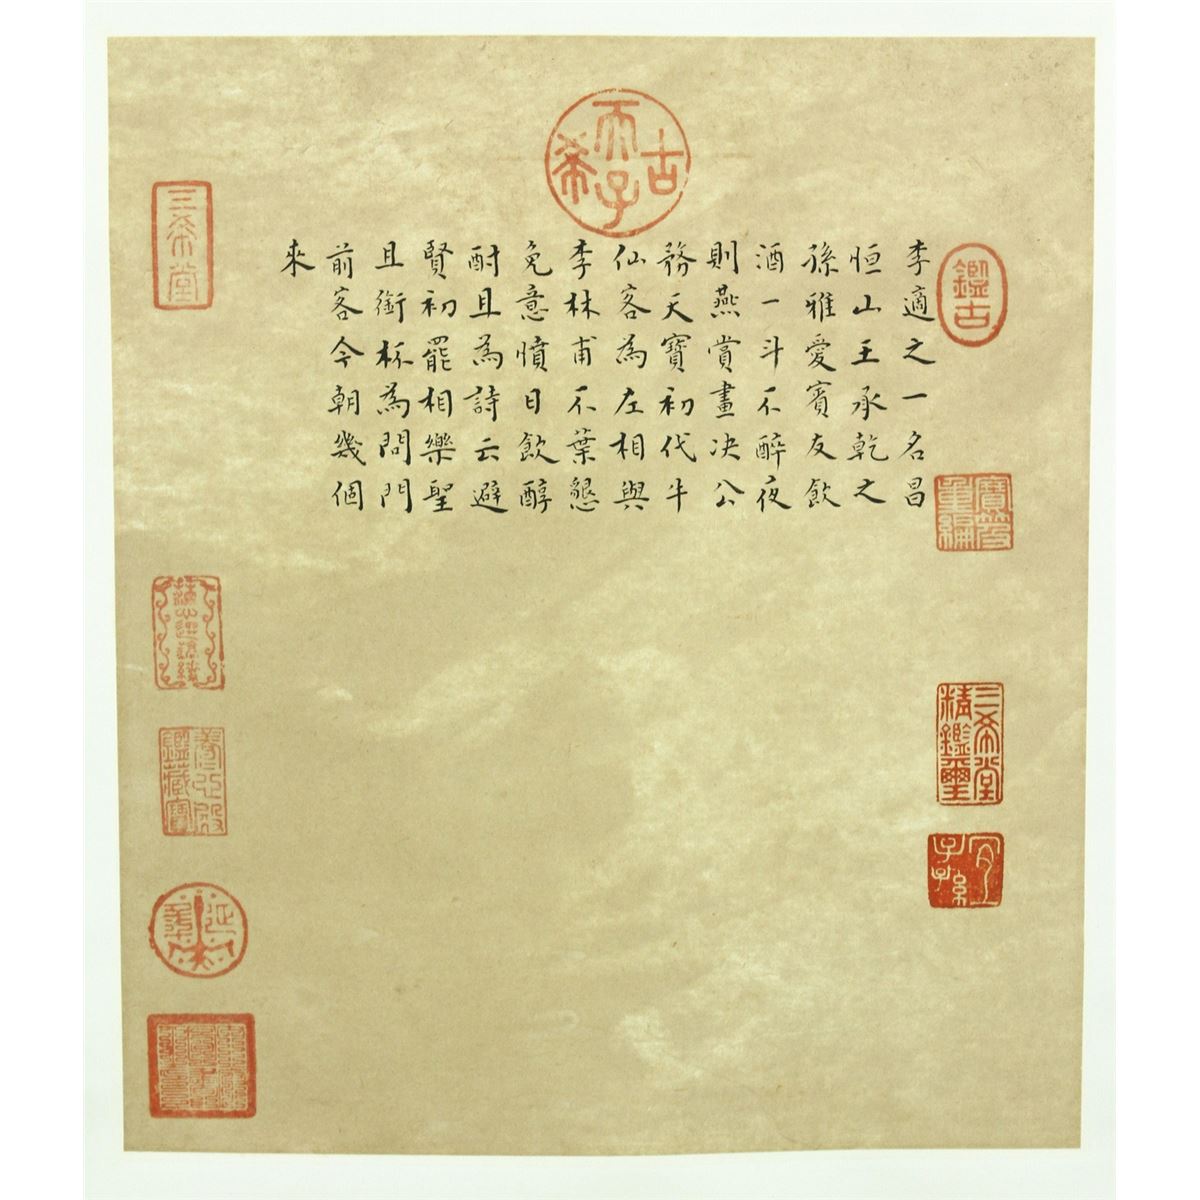 李適之一名昌
恒山王承乾之
孫雅愛賓友飲
酒一斗不醉夜
則燕賞晝決公
務天寶初代牛
仙客為左相與
李林甫不葉懇
免意憤日飲醇
酎且為詩云避
賢初罷相樂聖
且銜杯為問門
前客今朝幾個
來
古希天子
鑑古
寶笈重編
三希堂精鑑璽
宜子孫
三希堂
養心殿鑑藏寶